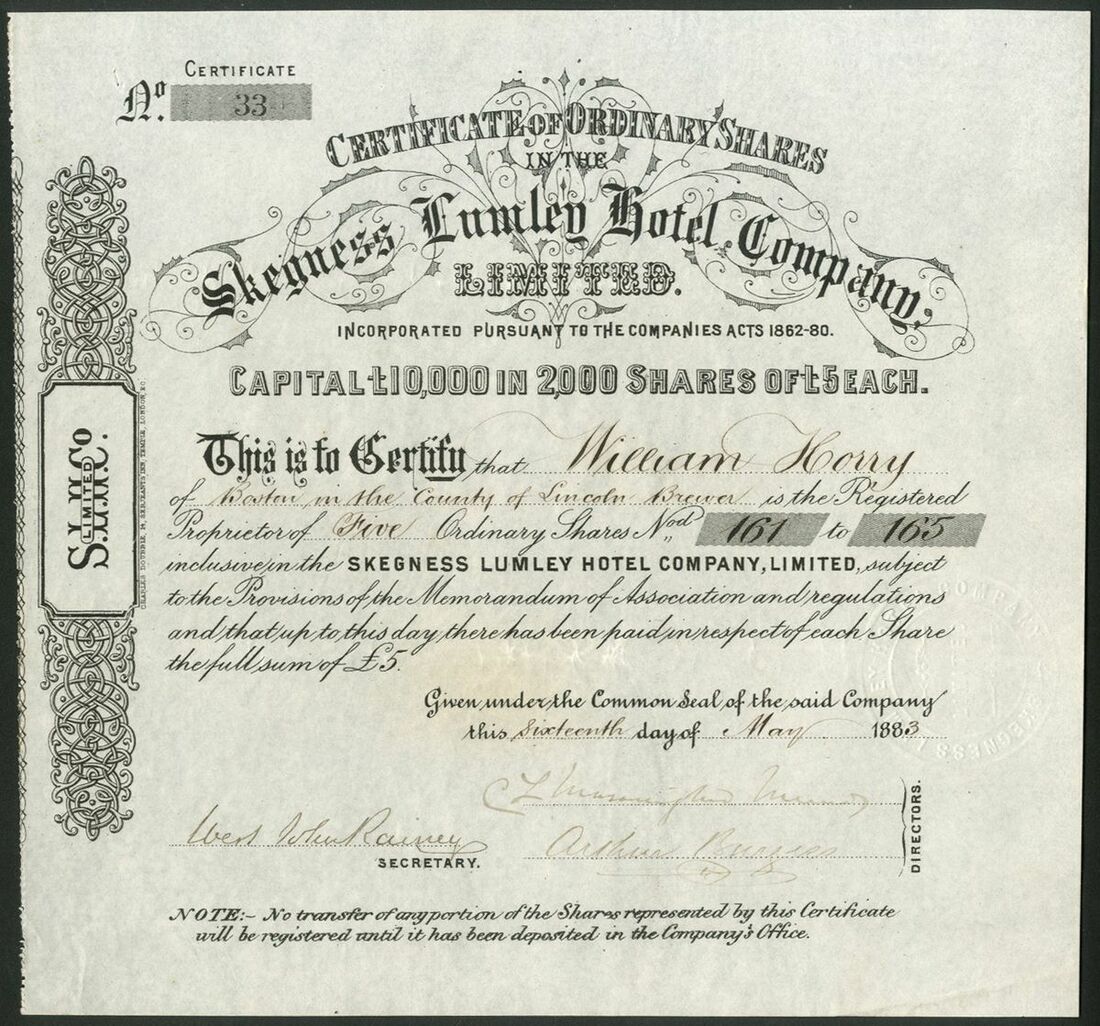 CERTIFICATE
No. 33
CERTIFICATE OF ORDINARY SHARES
IN THE
Skegness Lumley Hotel Company,
LIMITED.
INCORPORATED PURSUANT TO THE COMPANIES ACTS 1862-80.
CAPITAL £10,000 IN 2,000 SHARES OF £5 EACH.
This is to Certify that William Horry
of Boston in the County of Lincoln Brewer is the Registered
Proprietor of Five Ordinary Shares Nod. 161 to 165
inclusive in the SKEGNESS LUMLEY HOTEL COMPANY, LIMITED, subject
to the Provisions of the Memorandum of Association and regulations
and that up to this day there has been paid in respect of each Share
the full sum of £5.
Given under the Common Seal of the said Company
this Sixteenth day of May 1883
West John Rainey
SECRETARY.
Arthur Burgess
DIRECTORS.
NOTE:- No transfer of any portion of the Shares represented by this Certificate
will be registered until it has been deposited in the Company's Office.
S.L.H.Co.
LIMITED
COMPANY
SKEGNESS